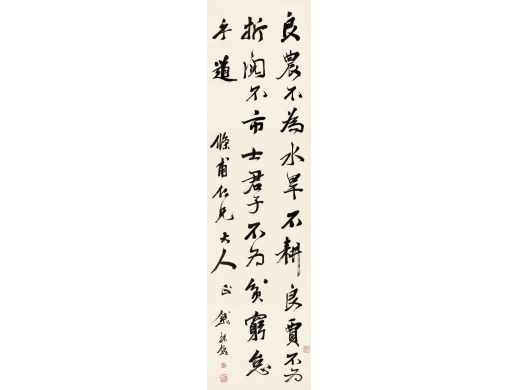 良農不為水旱不耕良賈不為
折閱不市士君子不為貧窮怠
乎道
條甫仁兄大人正